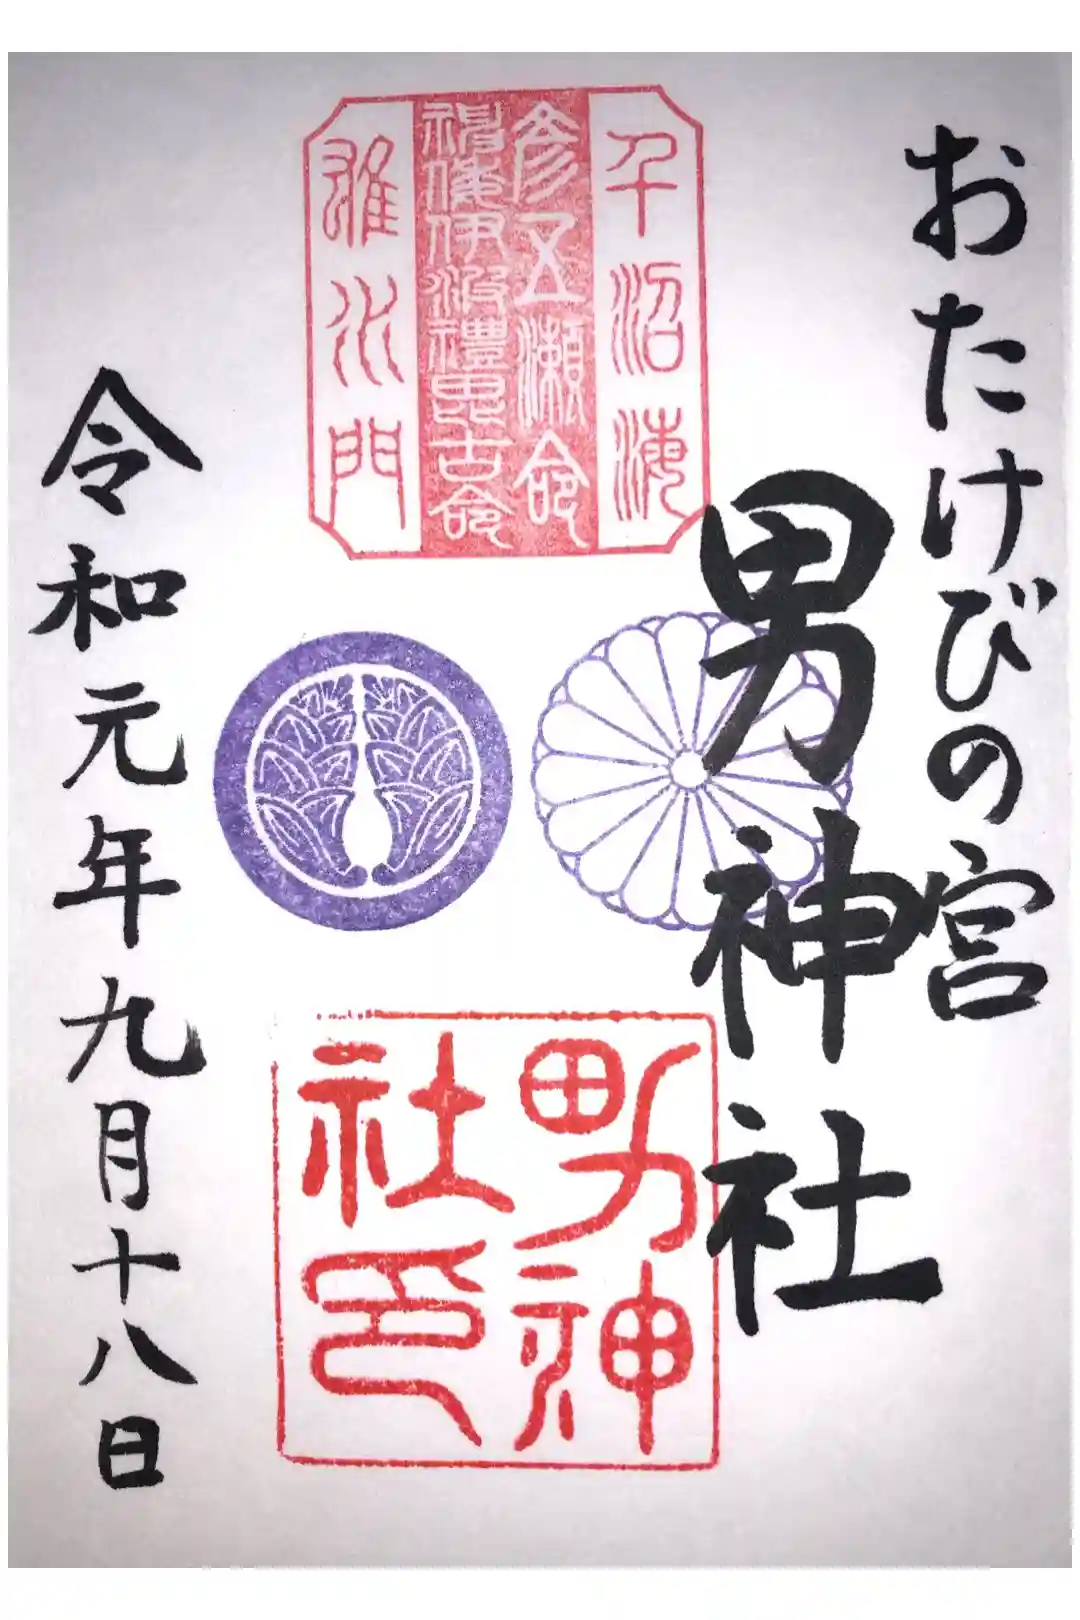 おたけびの宮
男神社
千沼海
彦五瀬命
神倭伊波禮毘古命
雄水門
男神
社印
令和元年九月十八日